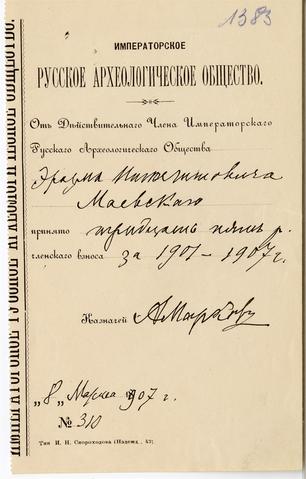 1383
ИМПЕРАТОРСКОЕ
РУССКОЕ АРХЕОЛОГИЧЕСКОЕ ОБЩЕСТВО.
Отъ Дѣйствительнаго Члена Императорскаго
Русскаго Археологическаго Общества
Эразма
Маевскаго
принято тридцать пять р.
членскаго взноса за 1901–1907 г.
Казначей А Марковъ
„8„ Марта 1907 г.
№ 310
Тип. И. Н. Скороходова (Надежд., 43).